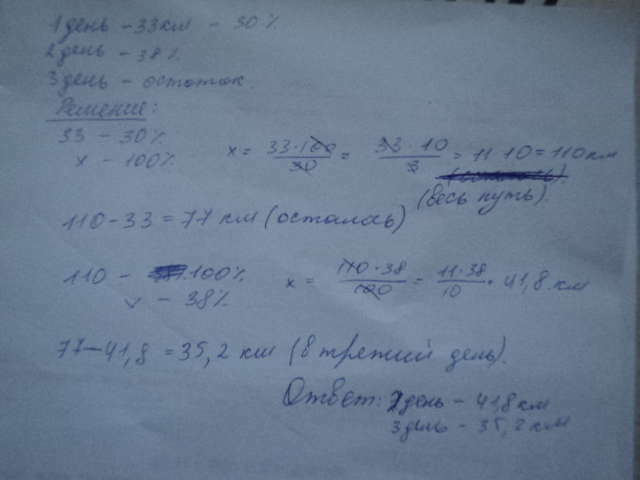 1 день - 33 км - 30%
2 день - 38%
3 день - остаток.
Решение:
33 - 30%
x - 100%
x = 33·100/30 = 33·10/3 = 11·10 = 110 км
(весь путь).
110 - 33 = 77 км (осталось)
110 - 100%
x - 38%
x = 110·38/100 = 11·38/10 = 41,8 км
77 - 41,8 = 35,2 км (в третий день).
Ответ: 2 день - 41,8 км
3 день - 35,2 км